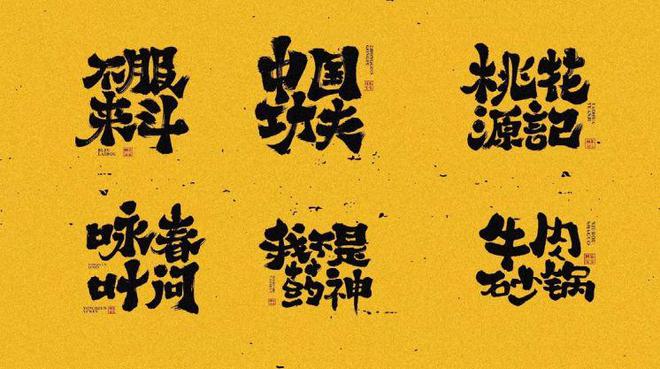 不服
来斗
中国
功夫
桃花
源記
咏春
叶问
我不是
药神
牛肉
砂锅